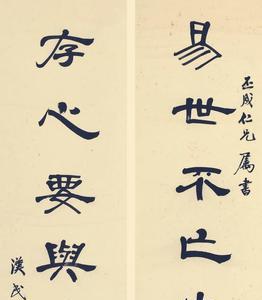 易世不亡
丕成仁兄属書
存心要與
漢民